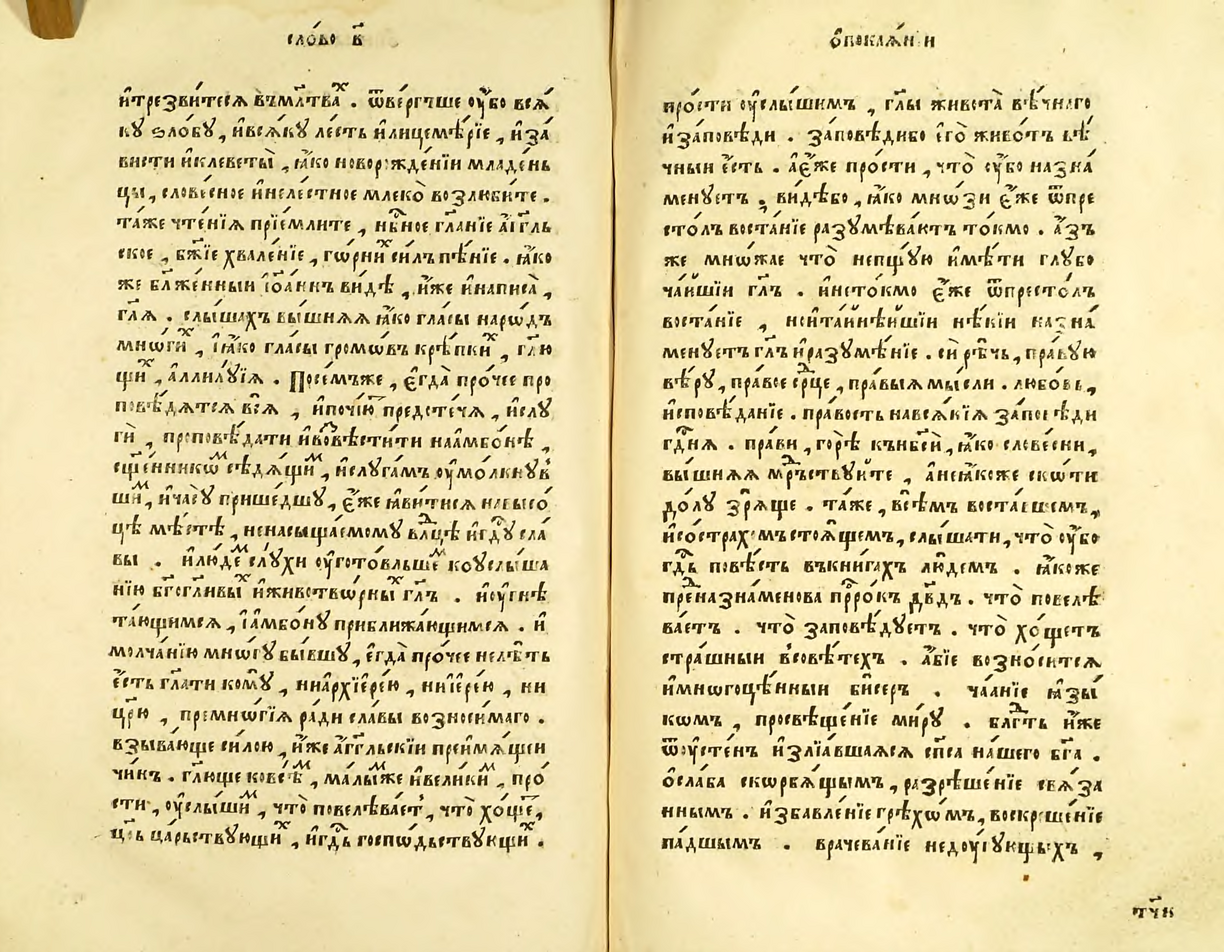 сло́во в҃
и҆трезви́теся въмл҃тва ⷯ. ѿве́ргъше оу҆́бо вся́
ку ѕло́бу, и҆вся́ку ле́сть и҆лицемѣ́рїе, и҆за́
висти и҆клеветы̀, ꙗ҆́ко новоро́ждѐнїи младе́нь
цы, слове́сное и҆неле́стное млеко̀ возлюби́те.
та́же чте́нїя прїе́млите, нбⷭ҇ное гл҃а́нїе а҆́гг҃ль
ское, бж҃їе хвале́нїе, го́рниⷯ си́лъ пѣ́нїе. ꙗ҆́ко
же бл҃же́нныи і҆ѡа́ннъ ви́дѣ, и҆́же и҆написа̀,
гл҃я. слы́шахъ вы́шняя ꙗ҆́ко гла́сы наро́дъ
мнѡ́гиⷯ, і҆ꙗ҆́ко гла́сы громѡ́въ крѣ́пкиⷯ, гл҃ю
щиⷯ, а҆ллилꙋ́їя. Посе́мъже, є҆гда̀ про́чее про
повѣ́дятся вся̀, и҆почі́юⷮ предсте́чя, и҆слꙋ
ги̑, проповѣ́дати и҆возвѣсти́ти наамбо́нѣ,
сщ҃е́нникоⷨ сѣдя́щиⷨ, и҆слꙋга́мъ оу҆мо́лкнꙋв
шиⷨ, и҆ча́сꙋ прише́дшꙋ, є҆́же ꙗ҆ви́тися навысо́
цѣ мѣ́стѣ, ненасыща́емомꙋ влⷣцѣ и҆гдⷭ҇ꙋ сла́
вы. и҆лю́деⷨ слꙋ́хи оу҆гото́вльшеⷨ коуслы́ша
нїю бг҃огли́выⷯ и҆животво́рныⷯ гл҃ъ. и҆оугнѣ
та́ющимся, і҆а҆мбо́нꙋ приближа́ющимся. и҆
молча́нїю мно́гꙋ бы́вшꙋ, є҆гда̀ про́чее нелѣ́ть
є҆́сть гл҃ати комꙋ̀, ниа҆рхїере́ю, нииере́ю, ни
цр҃ю, премно́гїя ра́ди сла́вы возноси́маго.
взыва́юще си́лою, и҆́же а҆́гг҃льскїи преимя́щеи
чи́нъ. гл҃юще ковсѣⷨ, ма́лыⷨже и҆вели́киⷨ, про́
сти, оу҆слы́шиⷨ, что̀ повелѣва́етъ, что̀ хо́щеⷮ,
цр҃ь ца́рьствꙋющиⷯ, и҆гдⷭ҇ь госпѡ́дьствꙋющиⷯ.
ѡ҆покая́нїи
про́сти оу҆слы́шимъ, гл҃ы живота̀ вѣ́чнаго
и҆за́повѣди. за́повѣдибо є҆го̀ живо́тъ вѣ́
чныи є҆́сть. а҆є҆́же про́сти, что̀ оу҆́бо назна́
менꙋетъ. ви́дѣбо, ꙗ҆́ко мно́зи є҆́же ѿпре
сто́лъ воста́нїе разꙋмѣва́ютъ то́кмо. а҆́зъ
же мно́жае что̀ непщꙋ́ю и҆мѣ́ти глꙋбо
ча́йшїи гл҃ъ. и҆нето́кмо є҆́же ѿпресто́лъ
воста́нїе, нои҆та́йнѣйшїи нѣ́кїи назна́
менꙋетъ гл҃ъ и҆ра́зꙋмѣ́нїе. си́ рѣчь, пра́вꙋю
вѣ́рꙋ, пра́вое срⷣце, пра́выя мы́сли. любо́вь,
и҆сповѣ́данїе. пра́вость нався́кїя за́повѣди
гдⷭ҇ня. пра́ви, горѣ̀ кънбⷭ҇и, ꙗ҆́ко слове́сни,
вы́шняя мꙋ́дрьствꙋйте, а҆неꙗ҆́коже ско́ти
до́лꙋ зря́ще. та́же, всѣ́мъ воста́вшемъ,
и҆со́страхомъстоя́щемъ, слы́шати, что̀ оу҆́бо
гдⷭ҇ь повѣ́сть въкни́гахъ лю́демъ. ꙗ҆́коже
преназна́менова прⷪ҇ро́къ двⷣъ. что̀ повелѣ
ва́етъ. что̀ заповѣ́дꙋетъ. что̀ хо́щетъ
стра́шныи всовѣ́техъ. а҆́бїе возно́сится
и҆многоцѣ́нныи би́серъ. ча́анїе ꙗ҆зы́
комъ, просвѣще́нїе ми́рꙋ. блгⷣть и҆́же
ѿоу҆сте́нъ и҆злїа́вшаяся сп҃са на́шего бг҃а.
ѻ҆сла́ба скорбя́щымъ, разрѣше́нїе свя́за
ннымъ. и҆збавле́нїе грѣхо́мъ, воскреше́нїе
па́дшымъ. врачева́нїе недꙋ́гꙋющыхъ,